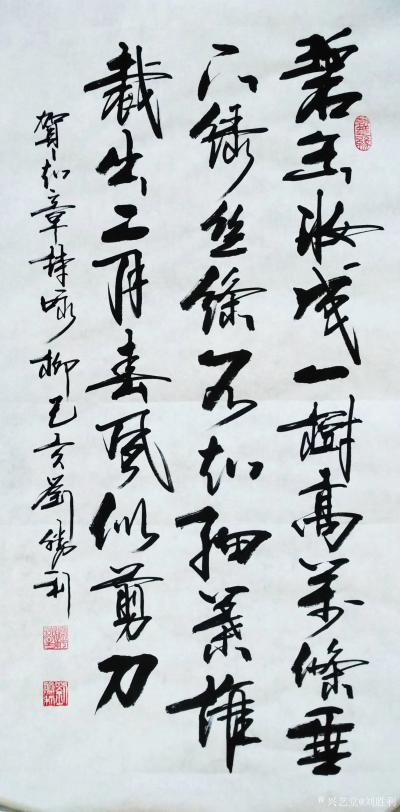 碧玉妝成一樹高萬條垂
下綠丝絛不知細葉誰
裁出二月春風似剪刀
賀知章詩咏柳己亥劉勝利
兴艺堂@刘胜利